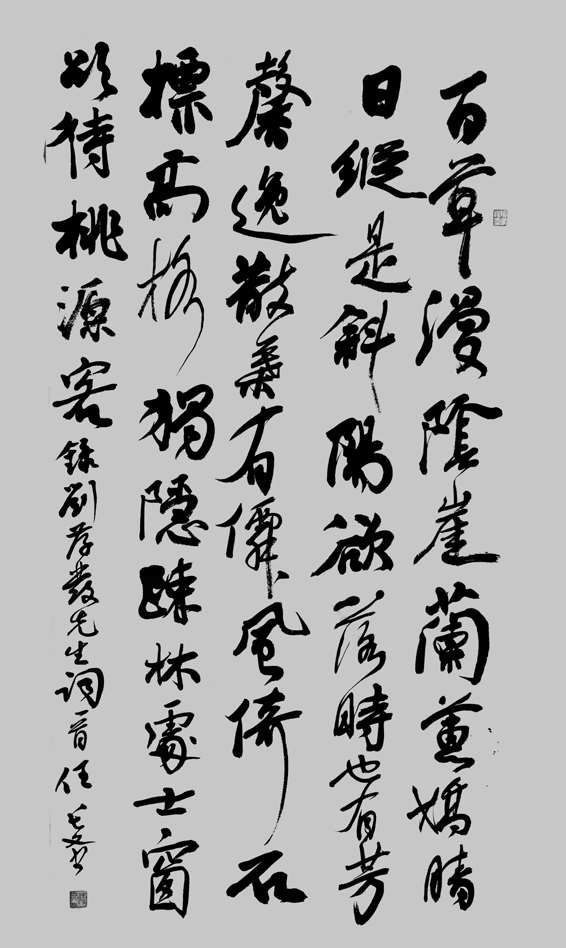 百草漫陰崖蘭蕙嬌晴
日縱是斜陽欲落時也有芳
馨逸散葉有儛風倚石
標高格獨隱疎林處士窗
欲待桃源客錄劉存發先生詞一首任